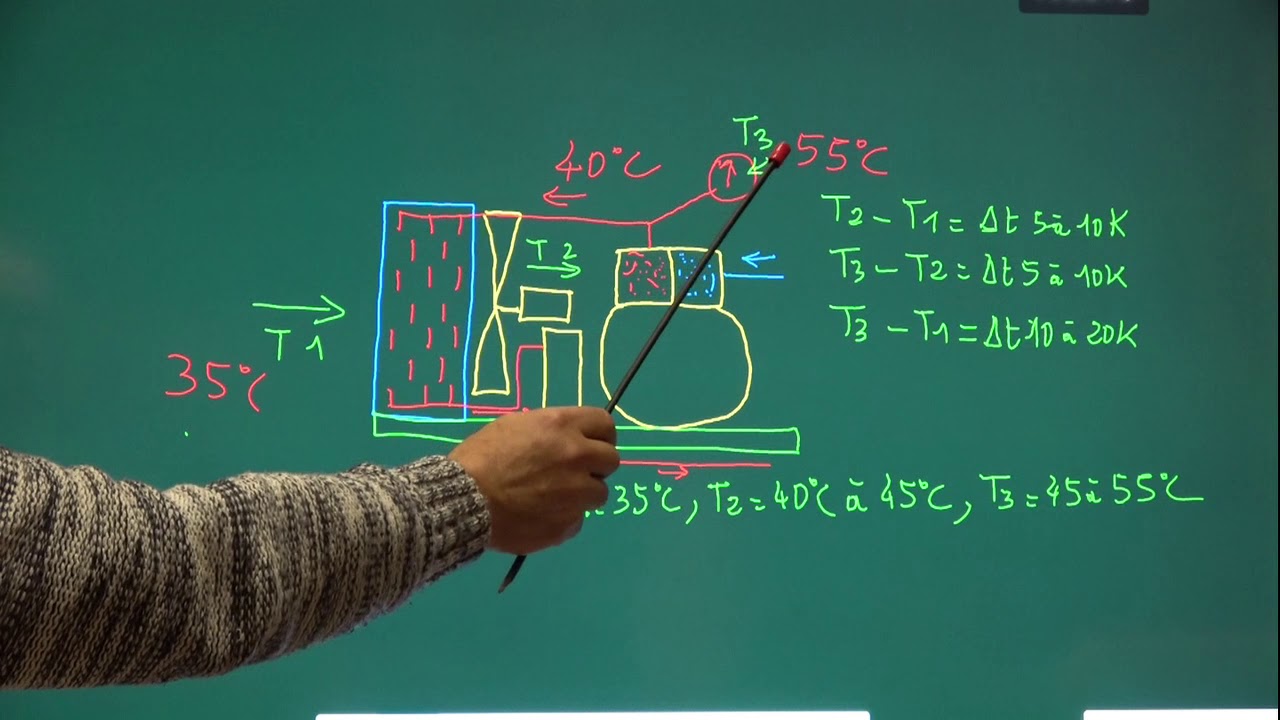 T3 55°C
40°C
T2 - T1 = Δt 5 à 10K
T2
T3 - T2 = Δt 5 à 10K
T1
T3 - T1 = Δt 10 à 20K
35°C
= 35°C, T2 = 40°C à 45°C, T3 = 45 à 55°C